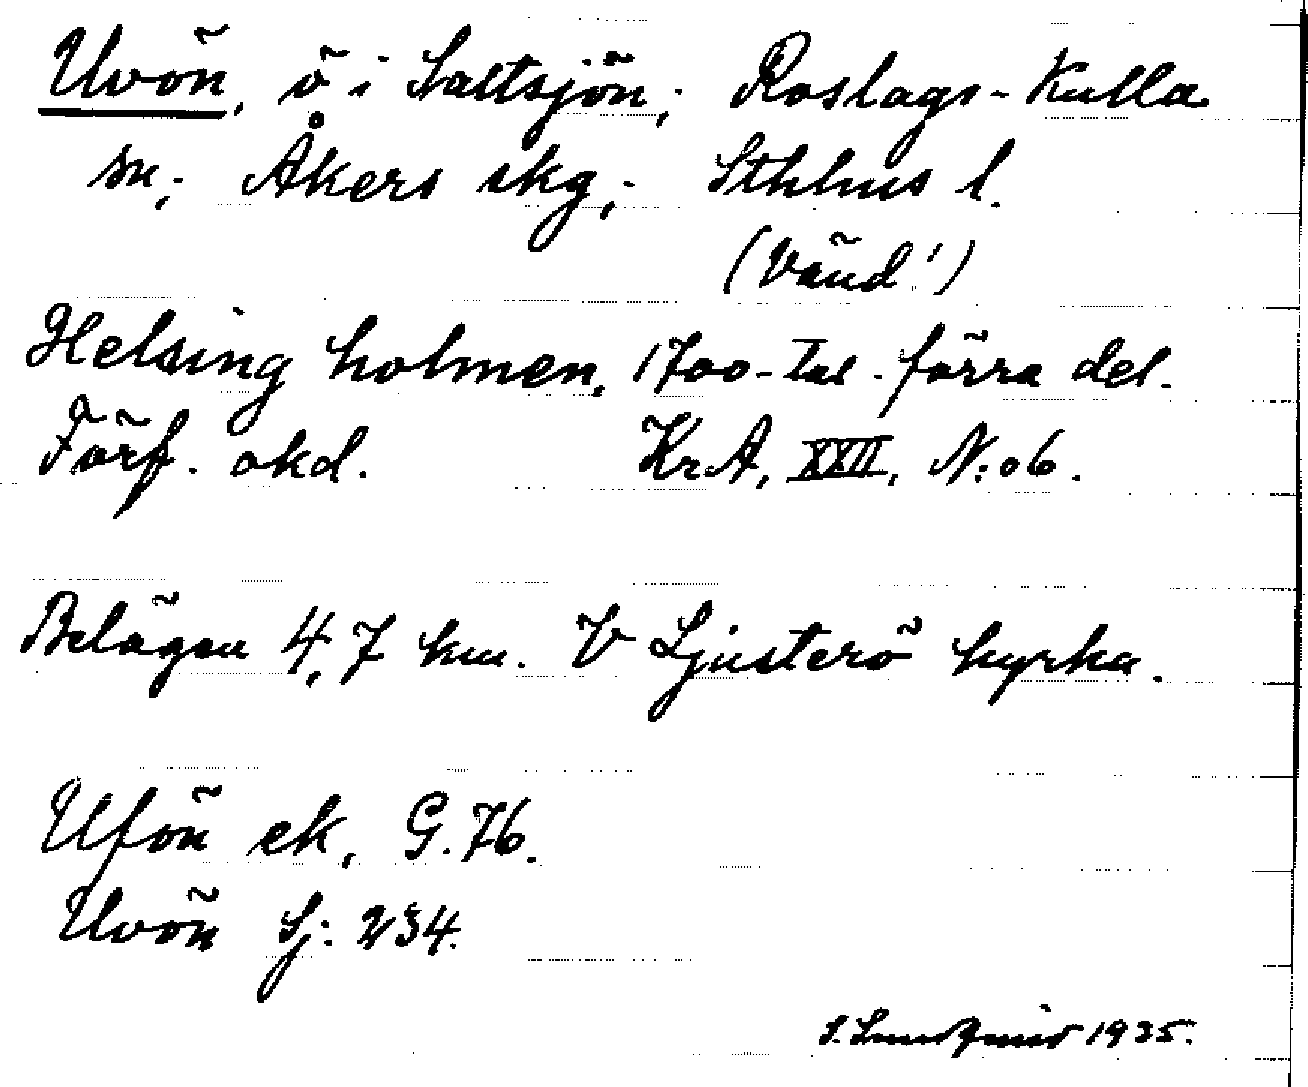 Uvön, ö i Saltsjön; Roslags-Kulla
sn; Åkers skg; Sthlms l.
(Vänd!)
Helsing holmen, 1700-tal. förra del.
Förf. okd. KrA, XXII, N:o6.
Belägen 4,7 km. V Ljusterö kyrka.
Ufön ek, G.76.
Uvön Sj: 234.
S. Lundqvist 1935.